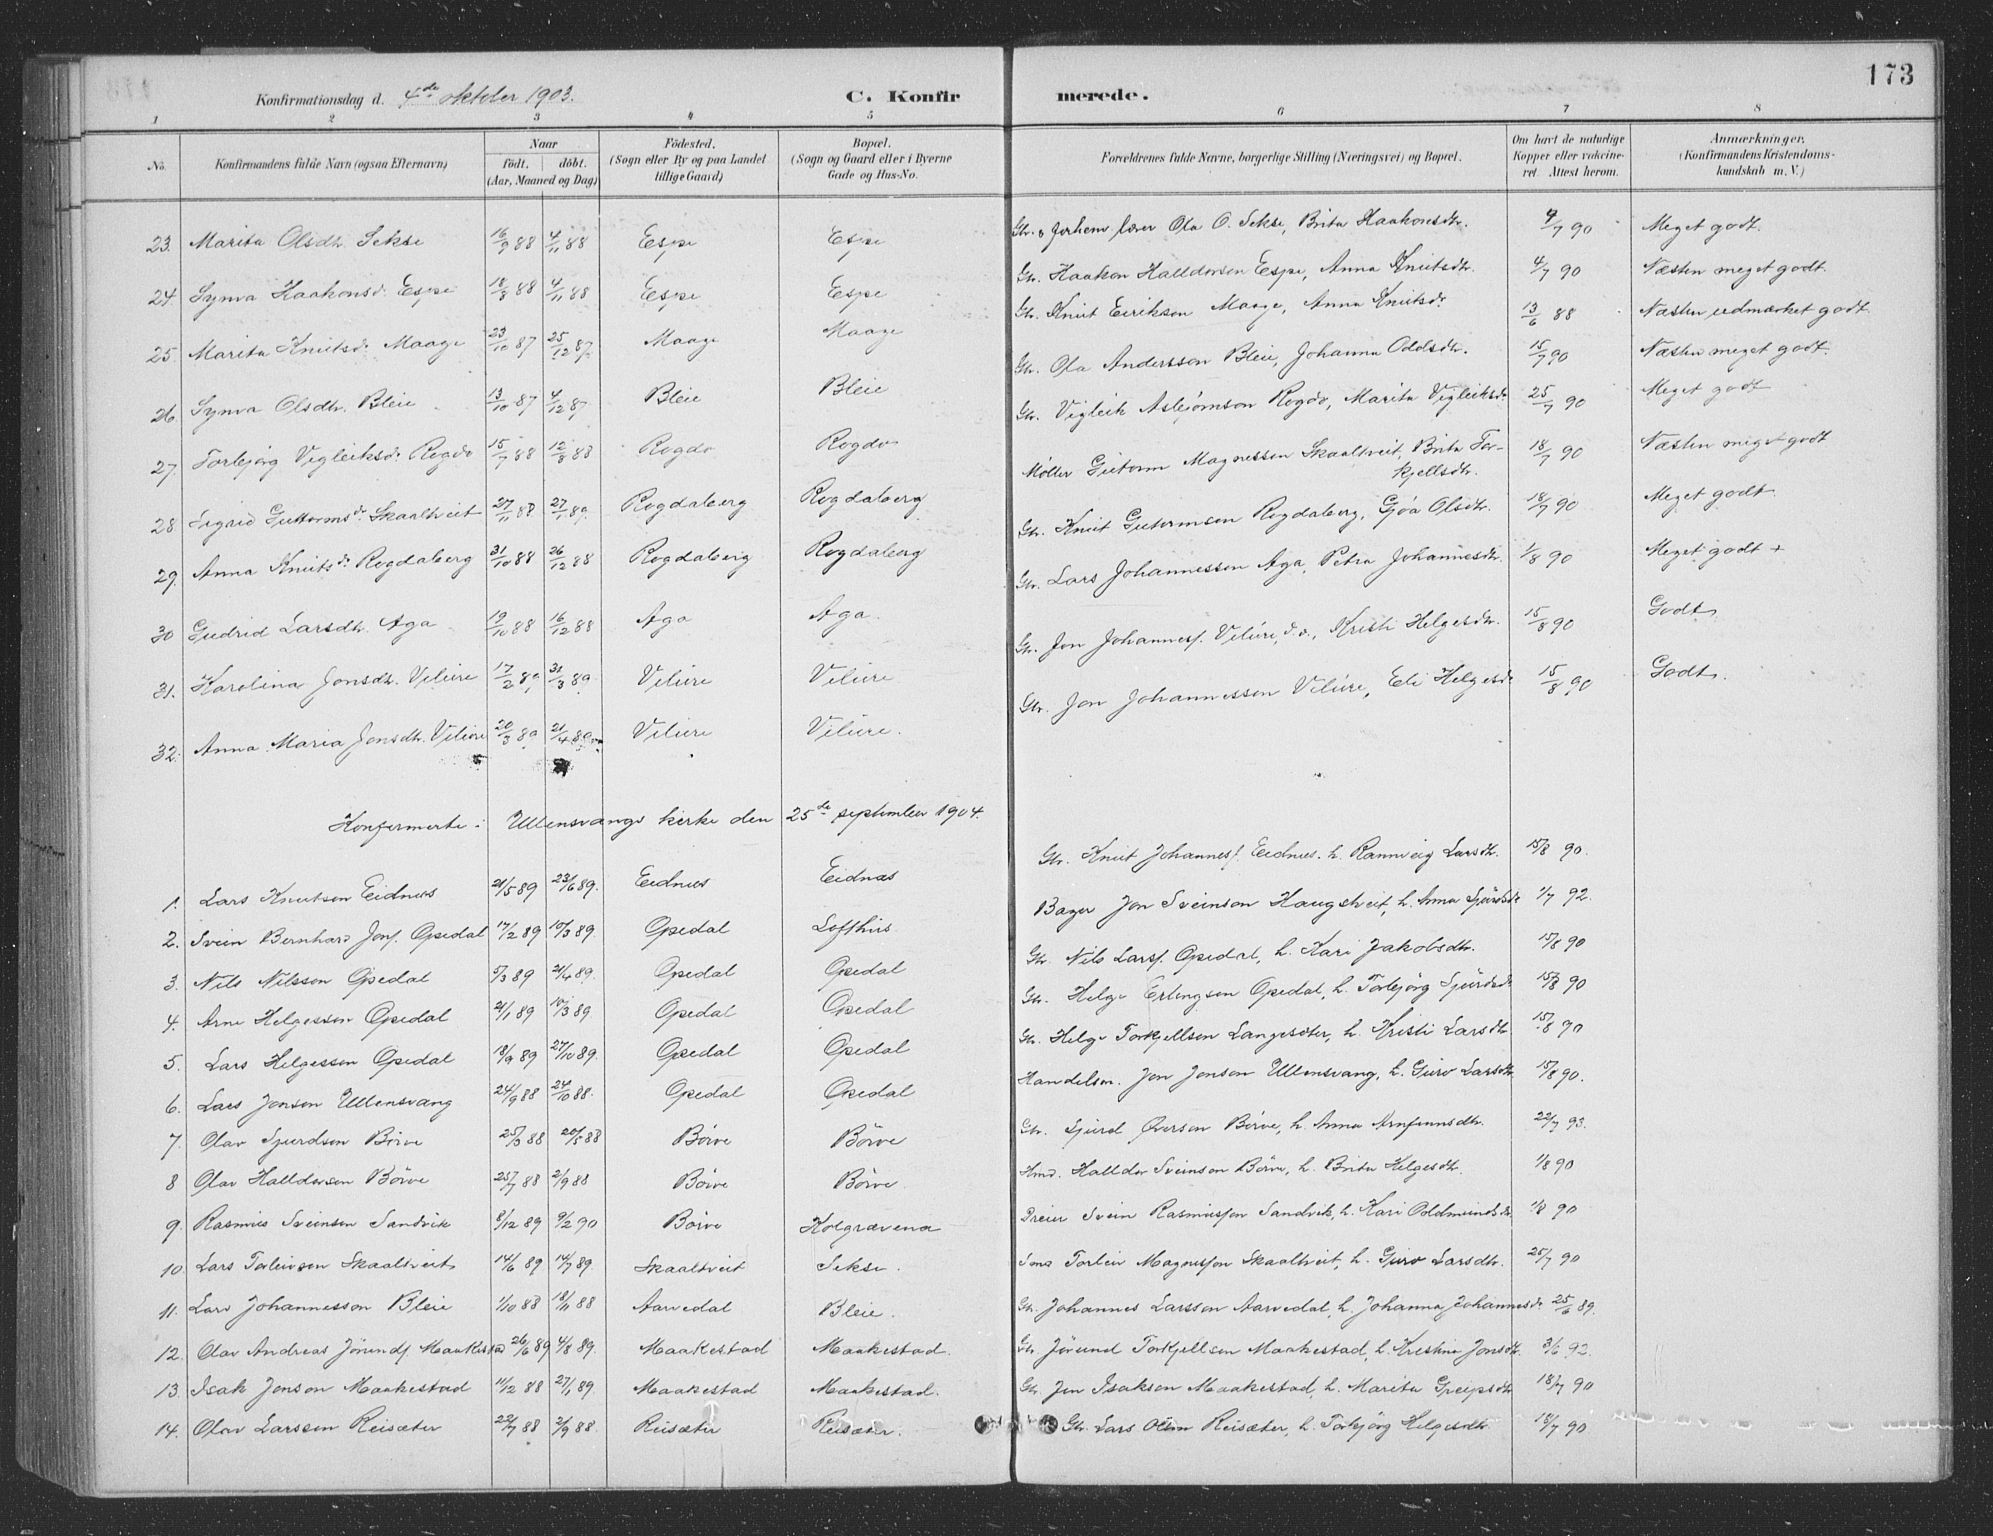 173
Konfirmationsdag d. 4de oktober 1903. C. Konfirmerede.
1 2 3 4 5 6 7 8
No. Konfirmandens fulde Navn (ogsaa Efternavn) Naar født. døbt. (Aar, Maaned og Dag) Fødested. (Sogn eller By og paa Landet tillige Gaard) Bopæl. (Sogn og Gaard eller i Byerne Gade og Hus-No. Forældrenes fulde Navne, borgerlige Stilling (Næringsvei) og Bopæl. Om havt de naturlige Kopper eller vakcineret. Attest herom. Anmærkninger. (Konfirmandens Kristendomskundskab m. V.)
23. Marita Olsdtr. Sekse 16/9 88 4/11 88 Espe Espe Gbr. Ola O. Sekse, Brita Haakonsdtr. 4/7 90 Meget godt.
24. Synva Haakonsd. Espe 18/8 88 4/11 88 Espe Espe Gbr. Haakon Halldorsen Espe, Anna Knutsdtr. 4/7 90 Næsten meget godt.
25. Marita Knutsdr. Maage 23/10 87 25/12 87 Maage Maage Gbr. Knut Eirikson Maage, Anna Knutsdr 13/6 88 Næsten udmærket godt.
26. Synva Olsdtr. Bleie 13/10 87 4/12 87 Bleie Bleie Gbr. Ola Andersson Bleie, Johanna Oddsdtr. 15/7 90 Næsten meget godt.
27. Torbjörg Vigleiksdr. Rogdo 15/7 88 12/8 88 Rogdo Rogdo Gbr. Vigleik Asbjørnson Rogdo, Marita Vigleiksdr 25/7 90 Meget godt
28. Sigrid Guttormsdr. Skaaltveit 27/11 88 27/1 89 Rogdaberg Rogdaberg Møller Gutorm Magnesson Skaaltveit, Brita Torkjellsdtr. 18/7 90 Næsten meget godt
29. Anna Knutsdr. Rogdaberg 31/10 88 26/12 88 Rogdaberg Rogdaberg Gbr. Knut Gutormson Rogdaberg, Gjöa Olsdtr. 18/7 90 Meget godt.
30 Gudrid Larsdtr. Aga 19/10 88 16/12 88 Aga Aga. Gbr. Lars Johannesson Aga, Petra Johannesdtr. 1/8 90 Meget godt +
31. Karolina Jonsdtr. Velure 17/2 89 31/3 89 Velure Velure Gbr. Jon Johannesf. Velure, d.o., Kristi Helgesdtr. 15/8 90 Godt.
32. Anna Maria Jonsdtr. Velure 20/3 89 21/4 89 Velure Velure. Gbr. Jon Johannesson Velure, Eli Helgesdr 15/8 90 Godt.
Konfermerte i Ullensvangs kirke den 25de september 1904.
1. Lars Knutson Eidnes 21/5 89 23/6 89. Eidnes Eidnes Gbr. Knut Johannesf. Eidnes. h. Rannveig Larsdtr. 15/8 90.
2. Svein Bernhard Jonf. Opedal 17/2 89 10/3 89. Opedal Lofthus Bager Jon Sveinson Haugstveit, h. Anna Sjursdr 1/7 92.
3. Nils Nilsson Opedal 5/3 89 21/4 89. Opedal Opedal Gbr. Nils Larsf. Opedal, h. Kari Jakobsdtr. 15/8 90
4. Arne Helgesson Opedal 21/1 89 10/3 89. Opedal Opedal Gbr. Helge Erlingson Opedal, h. Torbjörg Sjursdr 15/8 90
5. Lars Helgesson Opedal 18/9 89 27/10 89. Opedal Opedal Gbr. Helge Torkjellson Langesæter, h. Kristi Larsdtr. 15/8 90
6. Lars Jonson Ullensvang 24/9 88 24/10 88. Opedal Opedal Handelsm. Jon Jonson Ullensvang, h. Guro Larsdtr. 15/8 90.
7. Olav Sjurdson Börve 25/3 88 20/5 88 Börve Börve Gbr. Sjurd Börve, h. Anna Arnfinnsdtr. 22/7 93.
8 Olav Halldorson Börve 25/7 88 2/9 88 Börve Börve. Hmd. Halldor Sveinson Börve, h. Brita Helgesdtr. 1/8 90
9. Rasmus Sveinson Sandvik 8/12 89 9/2 90 Börve Kolgrævena Dreier Svein Rasmusson Sandvik, h. Kari Oddmundsdr. 1/8 90
10. Lars Torleivson Skaaltveit 14/6 89 14/7 89. Skaaltveit Sekse. Torleiv Magnesson Skaaltveit, h. Guro Larsdtr. 25/7 90
11. Lars Johannesson Bleie 1/10 88 18/11 88 Aarvedal Bleie. Gbr. Johannes Larsson Aarvedal, h. Johanna Johannesdr 25/6 89.
12. Olav Andreas Jörundf. Maakestad 26/6 89 4/8 89. Maakestad Maakestad. Gbr. Jörund Torkjellson Maakestad, h. Kristina Jonsdtr. 3/6 92.
13. Isak Jonson Maakestad 11/12 88 27/1 89. Maakestad Maakestad. Gbr. Jon Isakson Maakestad, h. Marita Greipsdtr 18/7 90
14. Olav Larsson Reisæter 22/7 88 2/9 88. Reisæter Reisæter. Gbr. Lars Olson Reisæter, h. Torbjörg Helgesdtr. 18/7 90